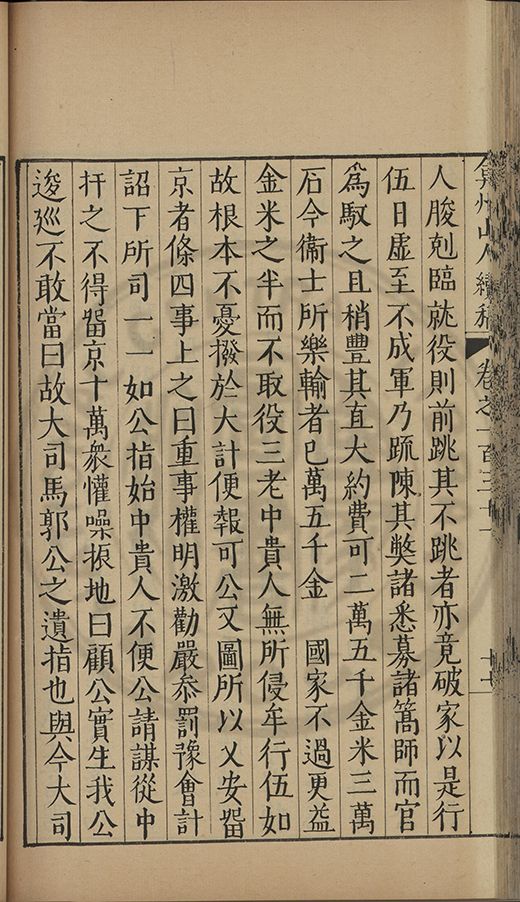 弇州山人續稿 卷之一百三十一 十七
人朘剋臨就役則前跳其不跳者亦竟破家以是行
伍日虛至不成軍乃疏陳其獘諸悉募諸篙師而官
為馭之且稍豐其直大約費可二萬五千金米三萬
石今衞士所樂輸者已萬五千金 國家不過更益
金米之半而不取役三老中貴人無所侵牟行伍如
故根本不憂撥於大計便報可公又圖所以乂安畱
京者條四事上之曰重事權明激勸嚴叅罰豫會計
詔下所司一一如公指始中貴人不便公請謀從中
扞之不得畱京十萬衆懽噪振地曰顧公實生我公
逡廵不敢當曰故大司馬郭公之遺指也與今大司